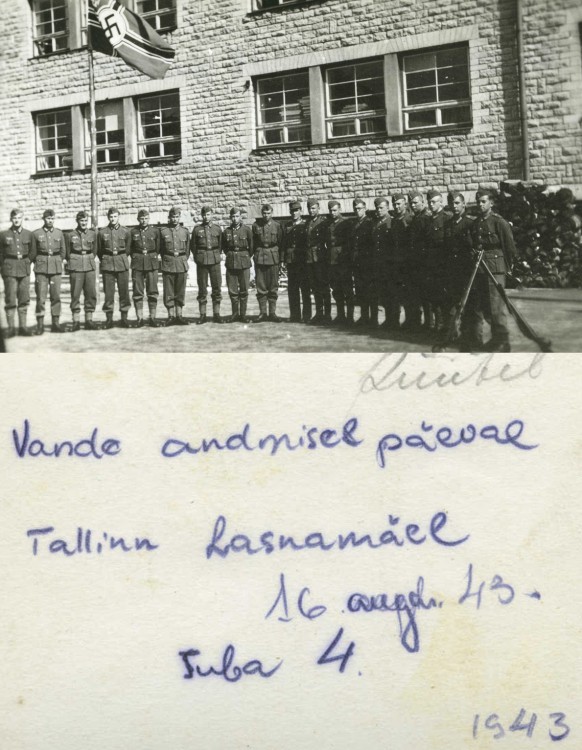 Vande andmisel päeval
Tallinn Lasnamäel
16 augh. 43.
Tuba 4.
1943